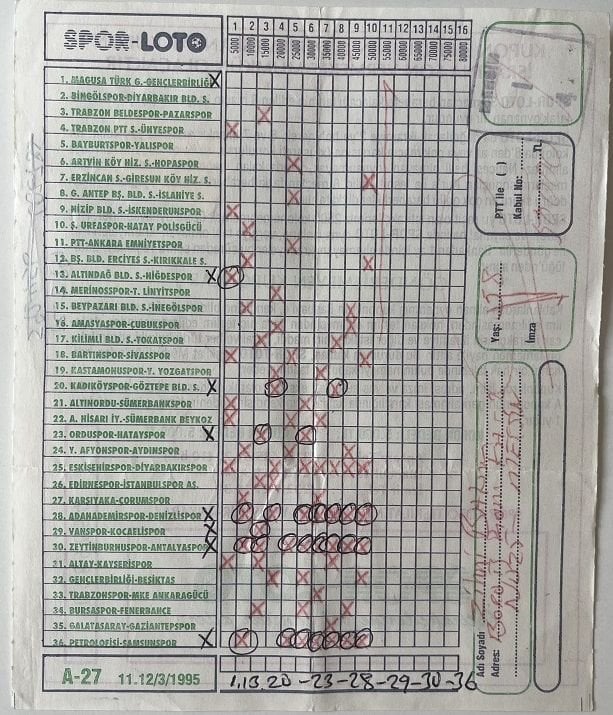 SPOR-LOTO
1 2 3 4 5 6 7 8 9 10 11 12 13 14 15 16
5000 10000 15000 20000 25000 30000 35000 40000 45000 50000 55000 60000 65000 70000 75000 80000
1. MAGUSA TÜRK G.-GENCLERBİRLİĞİ
2. BİNGÖLSPOR-DİYARBAKIR BLD. S.
3. TRABZON BELDESPOR-PAZARSPOR
4. TRABZON PTT S.-ÜNYESPOR
5. BAYBURTSPOR-YALISPOR
6. ARTVİN KÖY HİZ. S.-HOPASPOR
7. ERZİNCAN S.-GİRESUN KÖY HİZ. S.
8. G. ANTEP BŞ. BLD. S.-İSLAHİYE S.
9. NİZİP BLD. S.-İSKENDERUNSPOR
10. Ş. URFASPOR-HATAY POLİSGÜCÜ
11. PTT-ANKARA EMNİYETSPOR
12. BŞ. BLD. ERCİYES S.-KIRIKKALE S.
13. ALTINDAĞ BLD. S.-NİĞDESPOR
14. MERİNOSSPOR-T. LİNYİTSPOR
15. BEYPAZARI BLD. S.-İNEGÖLSPOR
16. AMASYASPOR-ÇUBUKSPOR
17. KİLİMLİ BLD. S.-TOKATSPOR
18. BARTINSPOR-SİVASSPOR
19. KASTAMONUSPOR-Y. YOZGATSPOR
20. KADIKÖYSPOR-GÖZTEPE BLD. S.
21. ALTINORDU-SÜMERBANKSPOR
22. A. HİSARI İY.-SÜMERBANK BEYKOZ
23. ORDUSPOR-HATAYSPOR
24. Y. AFYONSPOR-AYDINSPOR
25. ESKİŞEHİRSPOR-DİYARBAKIRSPOR
26. EDİRNESPOR-İSTANBULSPOR AS.
27. KARŞIYAKA-ÇORUMSPOR
28. ADANADEMİRSPOR-DENİZLİSPOR
29. VANSPOR-KOCAELİSPOR
30. ZEYTİNBURNUSPOR-ANTALYASPOR
31. ALTAY-KAYSERİSPOR
32. GENÇLERBİRLİĞİ-BEŞİKTAŞ
33. TRABZONSPOR-MKE ANKARAGÜCÜ
34. BURSASPOR-FENERBAHÇE
35. GALATASARAY-GAZİANTEPSPOR
36. PETROLOFİSİ-SAMSUNSPOR
A-27 11.12/3/1995
1.13.20-23-28-29-30-36
PTT ile ( )
Kabul No: TL.
Yaş:
İmza
Adı Soyadı
Adres: